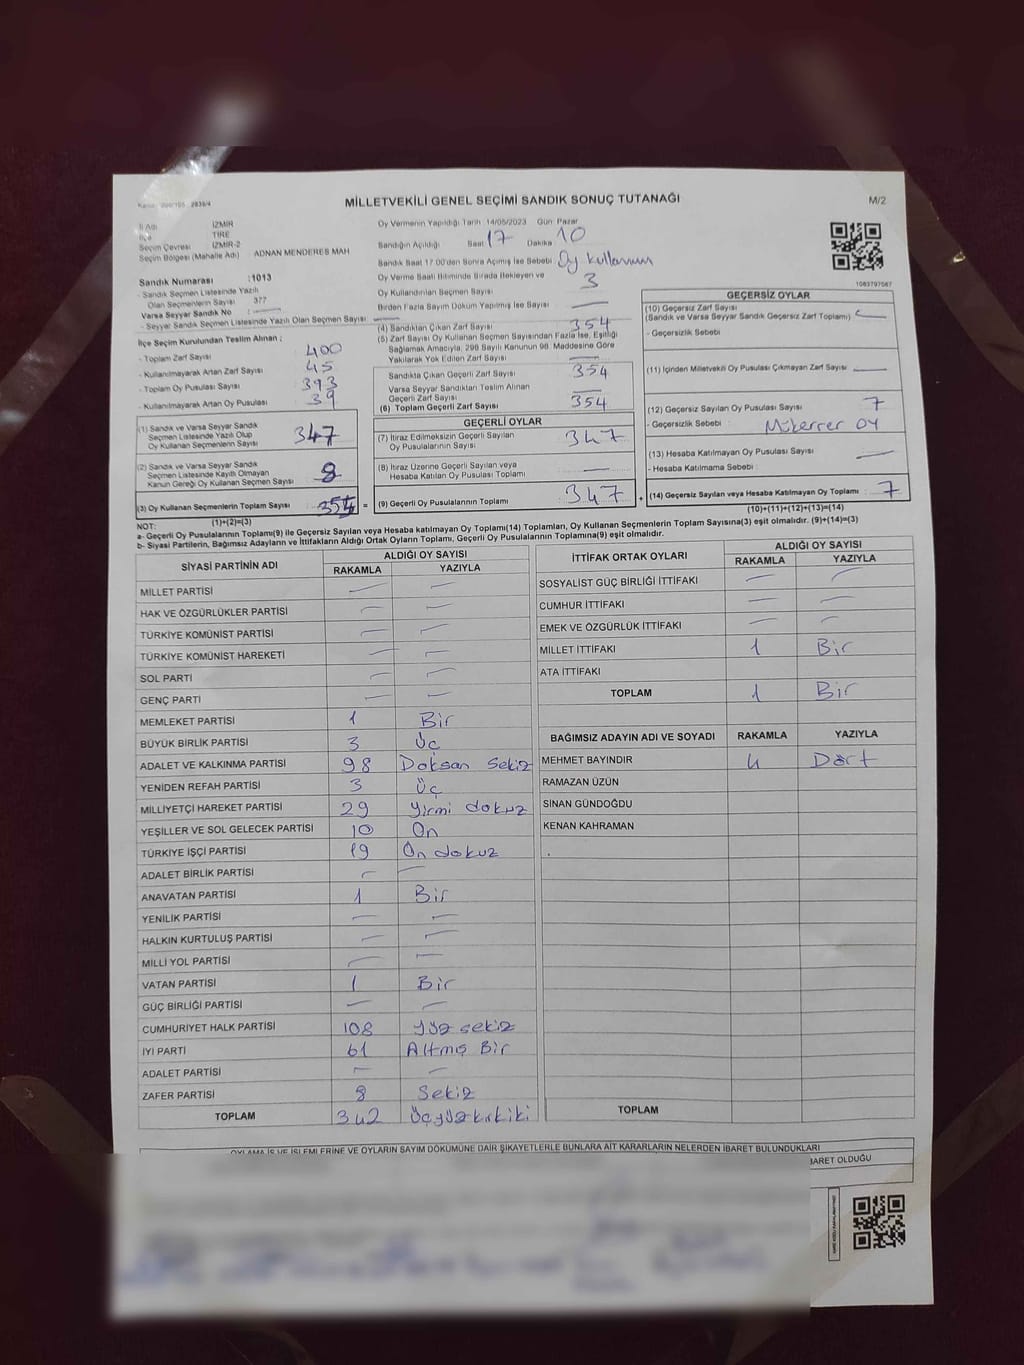 MİLLETVEKİLİ GENEL SEÇİMİ SANDIK SONUÇ TUTANAĞI
M/2
İl Adı İZMİR
İlçe TİRE
Seçim Çevresi İZMİR-2
Seçim Bölgesi (Mahalle Adı) ADNAN MENDERES MAH
Sandık Numarası :1013
- Sandık Seçmen Listesinde Yazılı
Olan Seçmenlerin Sayısı 377
Varsa Seyyar Sandık No : —
- Seyyar Sandık Seçmen Listesinde Yazılı Olan Seçmen Sayısı : —
İlçe Seçim Kurulundan Teslim Alınan ;
- Toplam Zarf Sayısı 400
- Kullanılmayarak Artan Zarf Sayısı 45
- Toplam Oy Pusulası Sayısı 393
- Kullanılmayarak Artan Oy Pusulası 39
(1) Sandık ve Varsa Seyyar Sandık
Seçmen Listesinde Yazılı Olup
Oy Kullanan Seçmenlerin Sayısı 347
(2) Sandık ve Varsa Seyyar Sandık
Seçmen Listesinde Kayıtlı Olmayan
Kanun Gereği Oy Kullanan Seçmen Sayısı 8
(3) Oy Kullanan Seçmenlerin Toplam Sayısı 354 =
(1)+(2)=(3)
Oy Vermenin Yapıldığı Tarih 14/05/2023 Gün Pazar
Sandığın Açıldığı Saat 17 Dakika 10
Sandık Saat 17.00'den Sonra Açılmış İse Sebebi Oy kullanım
Oy Verme Saati Bitiminde Sırada Bekleyen ve
Oy Kullandırılan Seçmen Sayısı 3
Birden Fazla Sayım Döküm Yapılmış İse Sayısı —
(4) Sandıktan Çıkan Zarf Sayısı 354
(5) Zarf Sayısı Oy Kullanan Seçmen Sayısından Fazla İse, Eşitliği
Sağlamak Amacıyla, 298 Sayılı Kanunun 98. Maddesine Göre
Yakılarak Yok Edilen Zarf Sayısı —
Sandıkta Çıkan Geçerli Zarf Sayısı 354
Varsa Seyyar Sandıktan Teslim Alınan
Geçerli Zarf Sayısı
(6) Toplam Geçerli Zarf Sayısı 354
GEÇERLİ OYLAR
(7) İtiraz Edilmeksizin Geçerli Sayılan
Oy Pusulasının Sayısı 347
(8) İtiraz Üzerine Geçerli Sayılan veya
Hesaba Katılan Oy Pusulası Toplamı —
(9) Geçerli Oy Pusulalarının Toplamı 347 +
1083797567
GEÇERSİZ OYLAR
(10) Geçersiz Zarf Sayısı
(Sandık ve Varsa Seyyar Sandık Geçersiz Zarf Toplamı) —
- Geçersizlik Sebebi
(11) İçinden Milletvekili Oy Pusulası Çıkmayan Zarf Sayısı —
(12) Geçersiz Sayılan Oy Pusulası Sayısı 7
- Geçersizlik Sebebi Mükerrer OY
(13) Hesaba Katılmayan Oy Pusulası Sayısı —
- Hesaba Katılmama Sebebi
(14) Geçersiz Sayılan veya Hesaba Katılmayan Oy Toplamı 7
(10)+(11)+(12)+(13)=(14)
NOT:
a- Geçerli Oy Pusulalarının Toplamı(9) ile Geçersiz Sayılan veya Hesaba katılmayan Oy Toplamı(14) Toplamları, Oy Kullanan Seçmenlerin Toplam Sayısına(3) eşit olmalıdır. (9)+(14)=(3)
b- Siyasi Partilerin, Bağımsız Adayların ve İttifakların Aldığı Ortak Oyların Toplamı, Geçerli Oy Pusulalarının Toplamına(9) eşit olmalıdır.
SİYASİ PARTİNİN ADI ALDIĞI OY SAYISI
RAKAMLA YAZIYLA
MİLLET PARTİSİ — —
HAK VE ÖZGÜRLÜKLER PARTİSİ — —
TÜRKİYE KOMÜNİST PARTİSİ — —
TÜRKİYE KOMÜNİST HAREKETİ — —
SOL PARTİ — —
GENÇ PARTİ — —
MEMLEKET PARTİSİ 1 Bir
BÜYÜK BİRLİK PARTİSİ 3 Üç
ADALET VE KALKINMA PARTİSİ 98 Doksan Sekiz
YENİDEN REFAH PARTİSİ 3 Üç
MİLLİYETÇİ HAREKET PARTİSİ 29 Yirmi dokuz
YEŞİLLER VE SOL GELECEK PARTİSİ 10 On
TÜRKİYE İŞÇİ PARTİSİ 19 On dokuz
ADALET BİRLİK PARTİSİ — —
ANAVATAN PARTİSİ 1 Bir
YENİLİK PARTİSİ — —
HALKIN KURTULUŞ PARTİSİ — —
MİLLİ YOL PARTİSİ — —
VATAN PARTİSİ 1 Bir
GÜÇ BİRLİĞİ PARTİSİ — —
CUMHURİYET HALK PARTİSİ 108 Yüz sekiz
İYİ PARTİ 61 Altmış Bir
ADALET PARTİSİ — —
ZAFER PARTİSİ 8 Sekiz
TOPLAM 342 Üçyüzkırkiki
İTTİFAK ORTAK OYLARI ALDIĞI OY SAYISI
RAKAMLA YAZIYLA
SOSYALİST GÜÇ BİRLİĞİ İTTİFAKI — —
CUMHUR İTTİFAKI — —
EMEK VE ÖZGÜRLÜK İTTİFAKI — —
MİLLET İTTİFAKI 1 Bir
ATA İTTİFAKI
TOPLAM 1 Bir
BAĞIMSIZ ADAYIN ADI VE SOYADI RAKAMLA YAZIYLA
MEHMET BAYINDIR 4 Dört
RAMAZAN ÜZÜN
SİNAN GÜNDOĞDU
KENAN KAHRAMAN
TOPLAM
OYLAMA İŞ VE İŞLEMLERİNE VE OYLARIN SAYIM DÖKÜMÜNE DAİR ŞİKAYETLERLE BUNLARA AİT KARARLARIN NELERDEN İBARET BULUNDUKLARI
BARET OLDUĞU